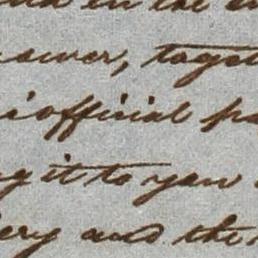 in the
answer, toget
official pa
g it to you
ery and the